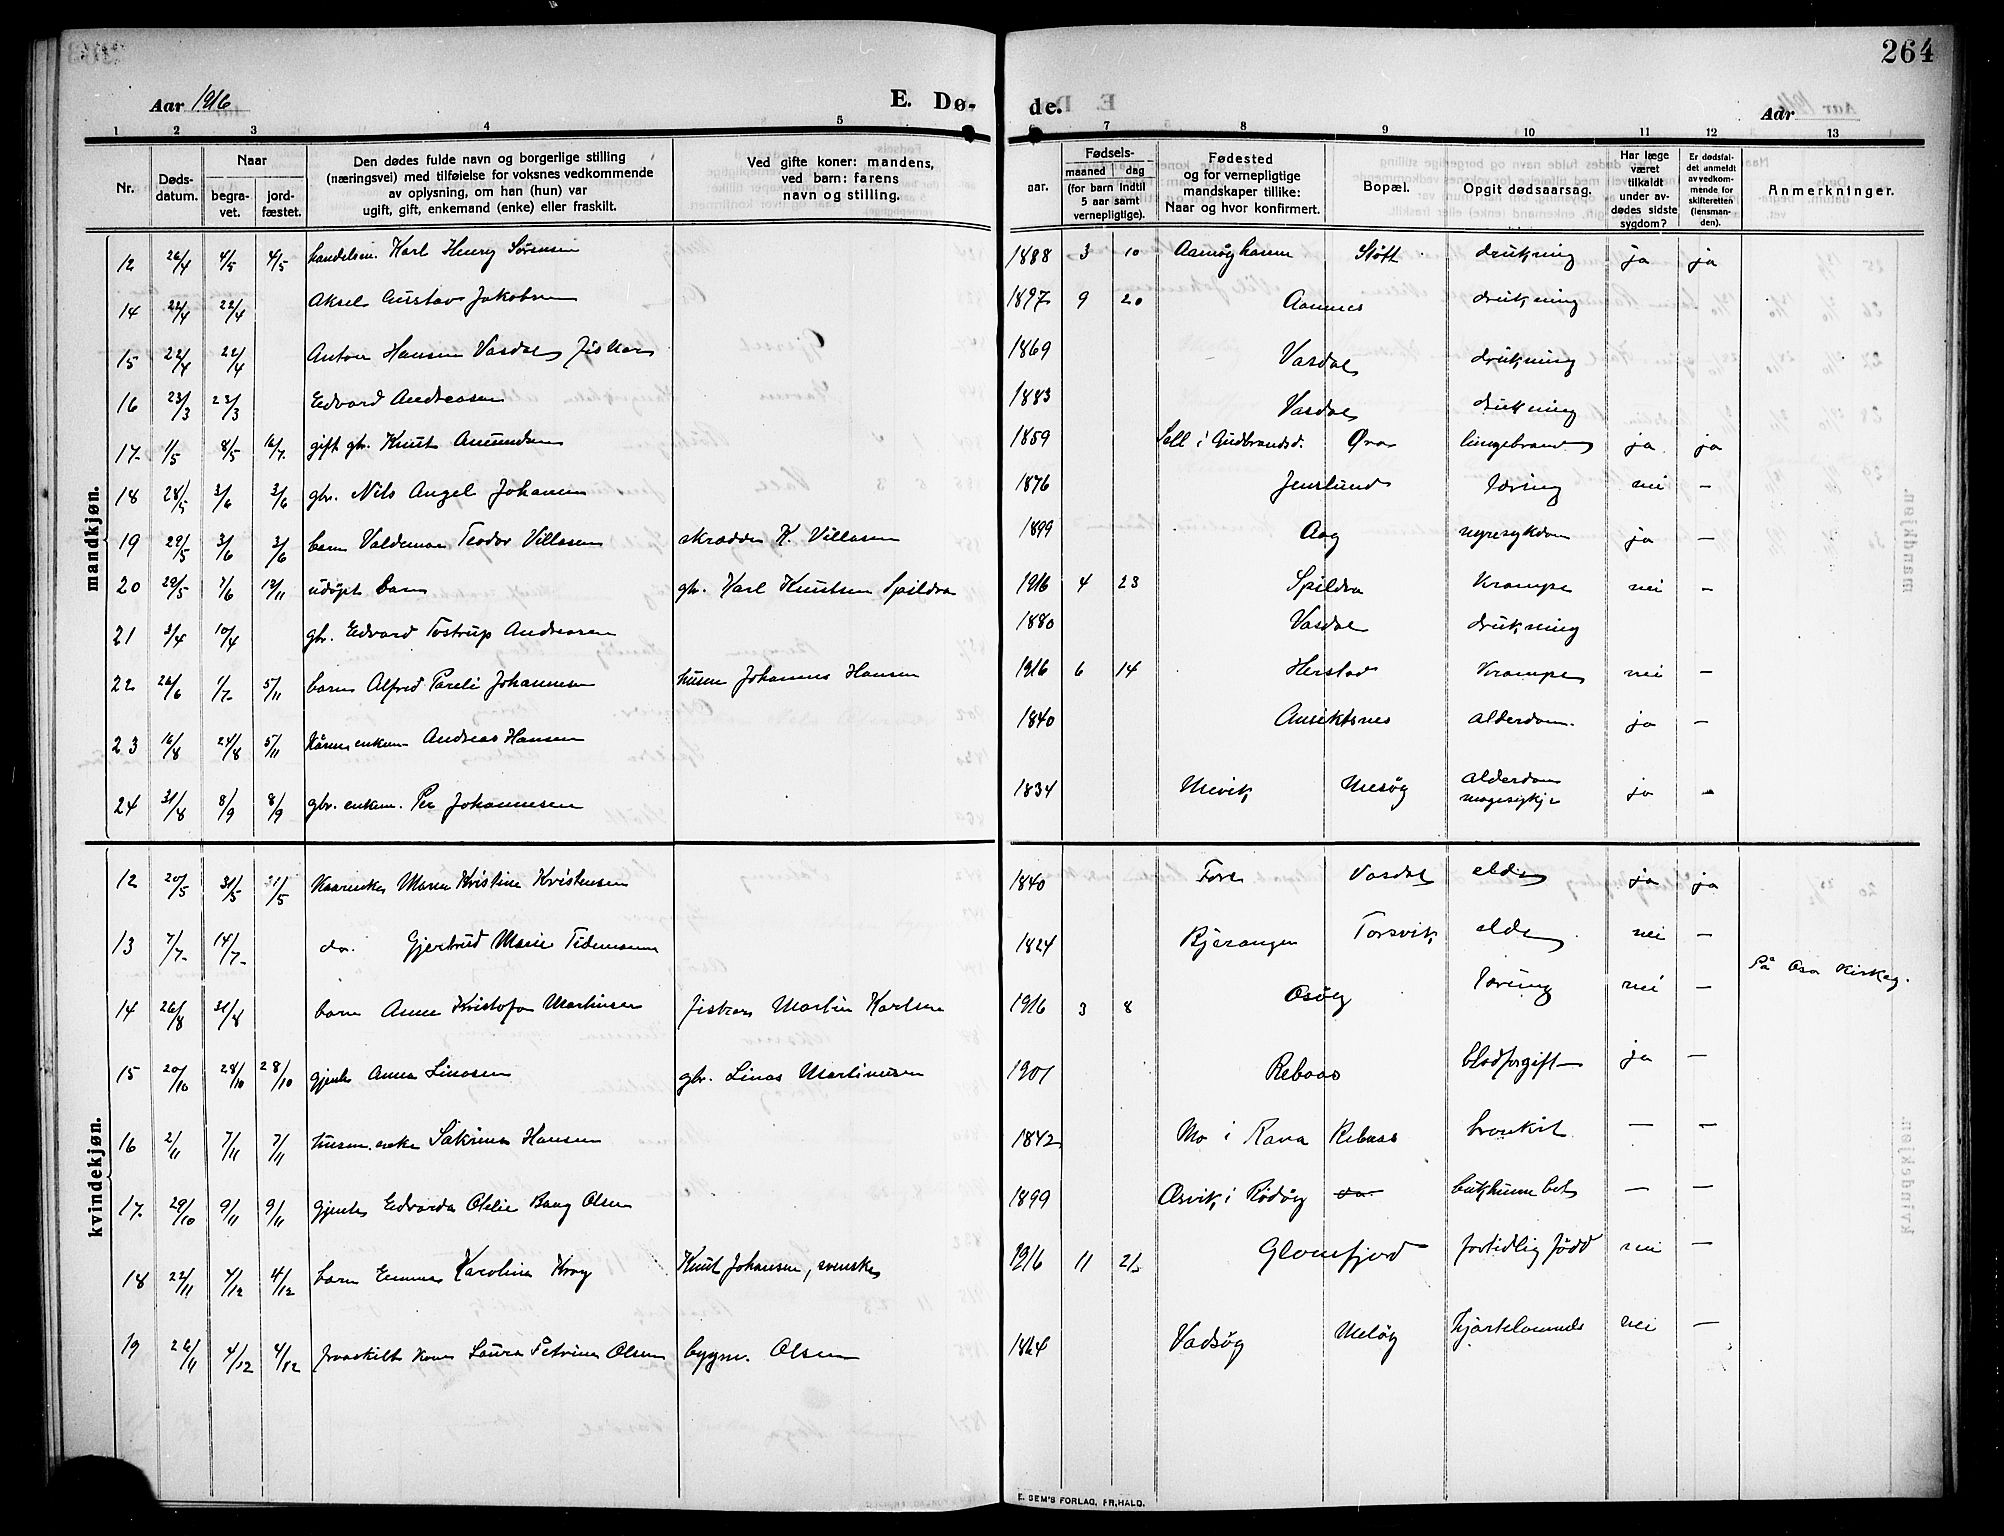 264
Aar 1916
E. Dø-
de.
Aar
1 2 3 4 5 6 7 8 9 10 11 12 13
Nr.
Døds-
datum.
Naar
begra-
vet.
jord-
fæstet.
Den dødes fulde navn og borgerlige stilling
(næringsvei) med tilføielse for voksnes vedkommende
av oplysning, om han (hun) var
ugift, gift, enkemand (enke) eller fraskilt.
Ved gifte koner: mandens,
ved barn: farens
navn og stilling.
Fødsels-
aar.
maaned dag
(for barn indtil
5 aar samt
vernepligtige).
Fødested
og for vernepligtige
mandskaper tillike:
Naar og hvor konfirmert.
Bopæl.
Opgit dødsaarsag.
Har læge
været
tilkaldt
under av-
dødes sidste
sygdom?
Er dødsfal-
det anmeldt
av vedkom-
mende for
skifteretten
(lensman-
den).
Anmerkninger.
mandkjøn.
12 26/4 4/5 4/5 handelsm. Karl Henry Sørensen 1888 3 10 Støtt drukning ja ja
14 22/4 22/4 Aksel Gustav Jakobsen 1897 9 20 Aamnes drukning
15 22/4 22/4 Anton Hansen Vasdal, fisker 1869 Vasdal drukning
16 23/3 23/3 Edvard Andreasen 1883 Vasdal drukning
17 1/5 8/5 16/7 gift gbr. Knut Amundsen 1859 Sell i Gudbrandsd. Øra lungebrand ja ja
18 28/5 3/6 3/6 gbr. Nils Angel Johansen 1876 Jenslund Tæring nei –
19 29/5 3/6 3/6 barn Valdemar Teodor Villasen skrædder K. Villasen 1899 Aag nyresykdom ja –
20 29/5 7/6 19/11 udøpt barn gbr. Karl Knutsen Spildra 1916 4 23 Spildra Krampe nei –
21 3/4 10/4 gbr. Edvard Tostrup Andreasen 1880 Vasdal drukning
22 26/6 1/7 5/11 barn Alfred Pareli Johannesen husm Johannes Hansen 1916 6 14 Herstad Krampe nei –
23 16/8 24/8 5/11 Kårm. enkem Andreas Hansen 1840 Ansiktsnes alderdom. ja –
24 31/8 8/9 8/9 gbr. enkem. Per Johannesen 1834 Mevik Mesøy alderdom
ja –
kvindekjøn.
12 20/5 31/5 31/5 Kaarenke Maren Kristine Kristensen 1840 Fore Vasdal elde ja ja
13 7/7 14/7 do. Gjertrud Marie Tidemann 1824 Bjerangen Torsvik elde nei –
På Osa Kirkeg.
14 26/8 31/8 barn Anne Kristofa Martinsen fiskers Martin Karlsen 1916 3 8 Osøy Tæring nei –
15 20/10 28/10 28/10 gjente Anna Linasen gbr. Linas Martinusen 1901 Rebaas blodforgift– ja –
16 2/11 7/11 7/11 husm. enke Sakrina Hansen 1842 Mo i Rana Rebaas bronkit – –
17 29/10 9/11 9/11 gjente Edvarda Otelie Bang Olsen 1899 Æsvik i Rødøy do. bukhinnebet – –
18 22/11 4/12 4/12 barn Emma Karolina Krog Knut Johansen, svenske 1916 11 21 Glomfjord fortidlig född nei –
19 26/11 4/12 4/12 fraskilt kone Laura Petrina Olsen bygm. Olsen 1864 Vadsøy Meløy nei –
E. SEM'S FORLAG, FR.HALD.